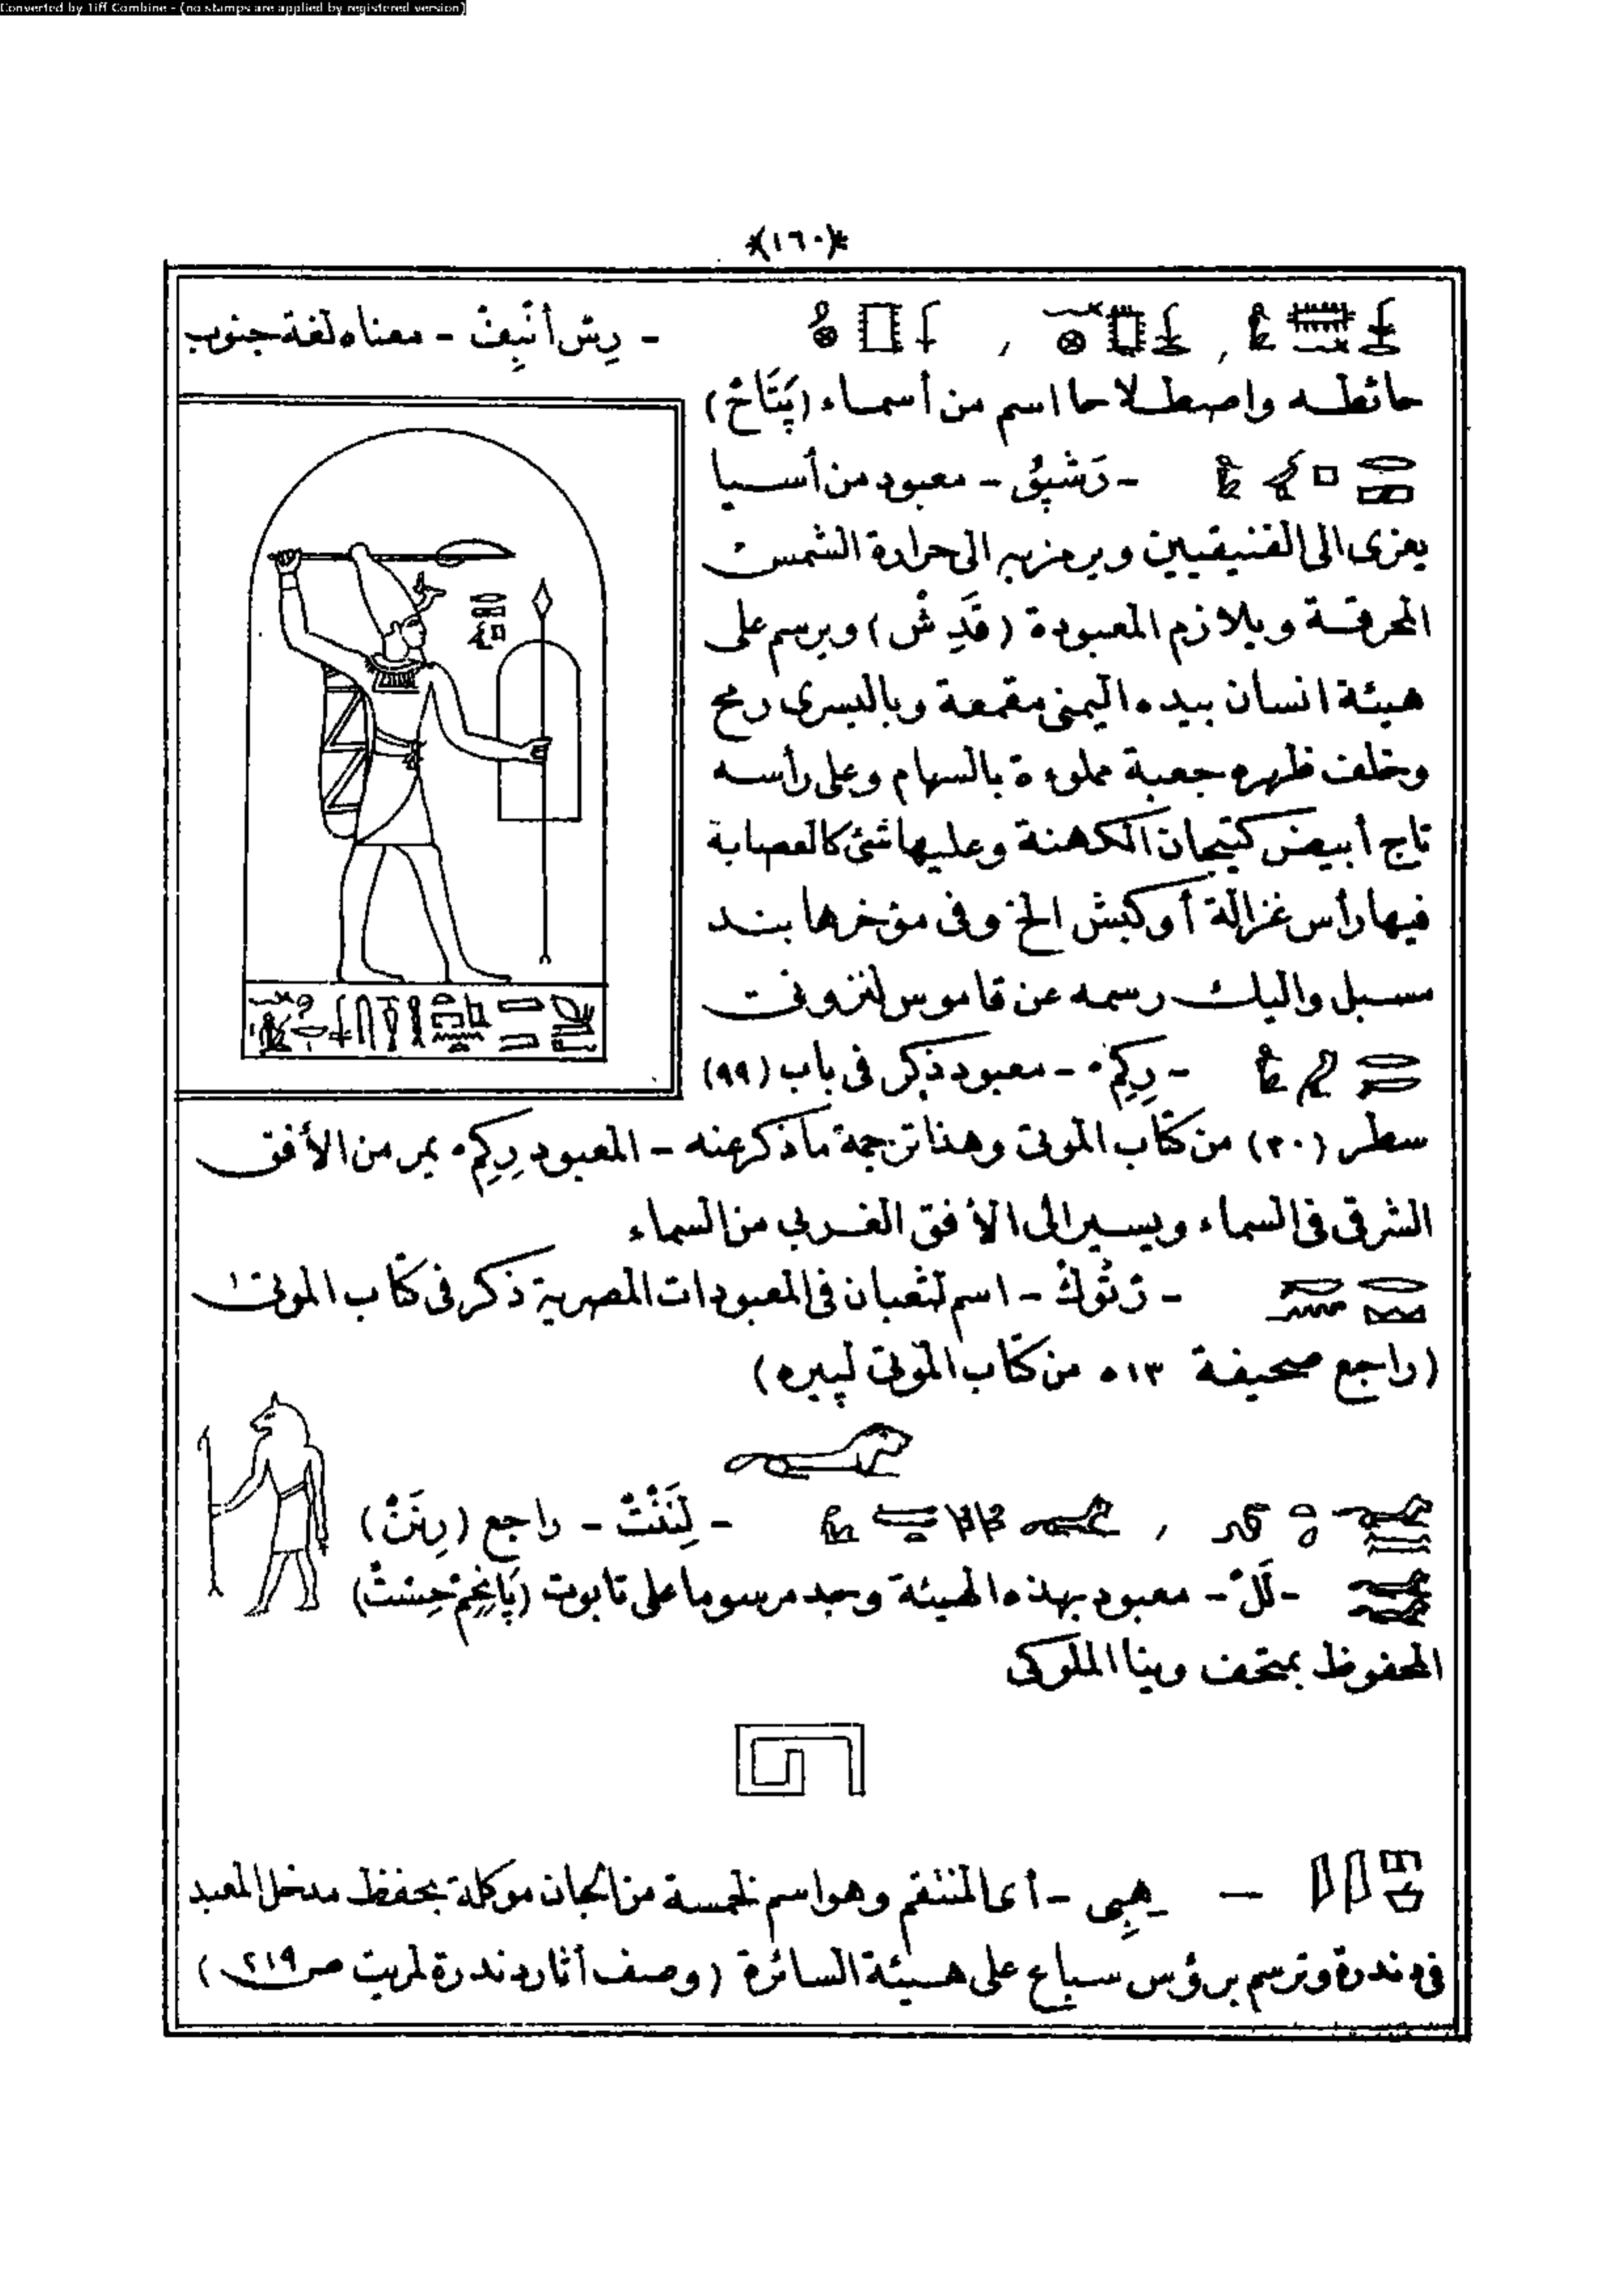 Converted by Tiff Combine - (no stamps are applied by registered version)
*(١٦٠)*
- رِسْ أنْبِفْ - معناه لغة جنوب
حائطه واصطلاحا اسم من أسماء (پَتَّاحْ)
- رَشْپُو - معبود من أسيا
يعزى الى الفنيقيين ويرمز به الى حرارة الشمس
المحرقة ويلازم المعبودة (قَدِشْ) ويرسم على
هيئة انسان بيده اليمنى مقمعة وباليسرى رمح
وخلف ظهره جعبة مملوءة بالسهام وعلى رأسه
تاج أبيض كتيجان الكهنة وعليها شئ كالعصابة
فيها رأس غزالة أوكبش الخ وفى مؤخرها بند
مسبل واليك رسمه عن قاموس لنزونت
- رِكِمْ - معبود ذكر فى باب (٩٩)
سطر (٣٠) من كتاب الموتى وهذا ترجمة ما ذكر عنه - المعبود رِكِمْ يمر من الأفق
الشرقى فى السماء ويسير الى الأفق الغربي من السماء
- اسم لثعبان فى المعبودات المصرية ذكر فى كتاب الموتى
(راجع صحيفة ٥١٣ من كتاب الموتى لپيره)
- لِنَنْتْ - راجع (رِنَنْ)
- لَلْ - معبود بهذه الهيئة وجد مرسوما على تابوت
المحفوظ بمتحف وينا الملوكى
- هِبِى - أى المنتقم وهو اسم لخمسة من الجان موكلة بحفظ مدخل المعبد
فى دندرة وترسم برؤس سباع على هيئة السائرة (وصف أثار دندرة لمريت ص ٢١٩)